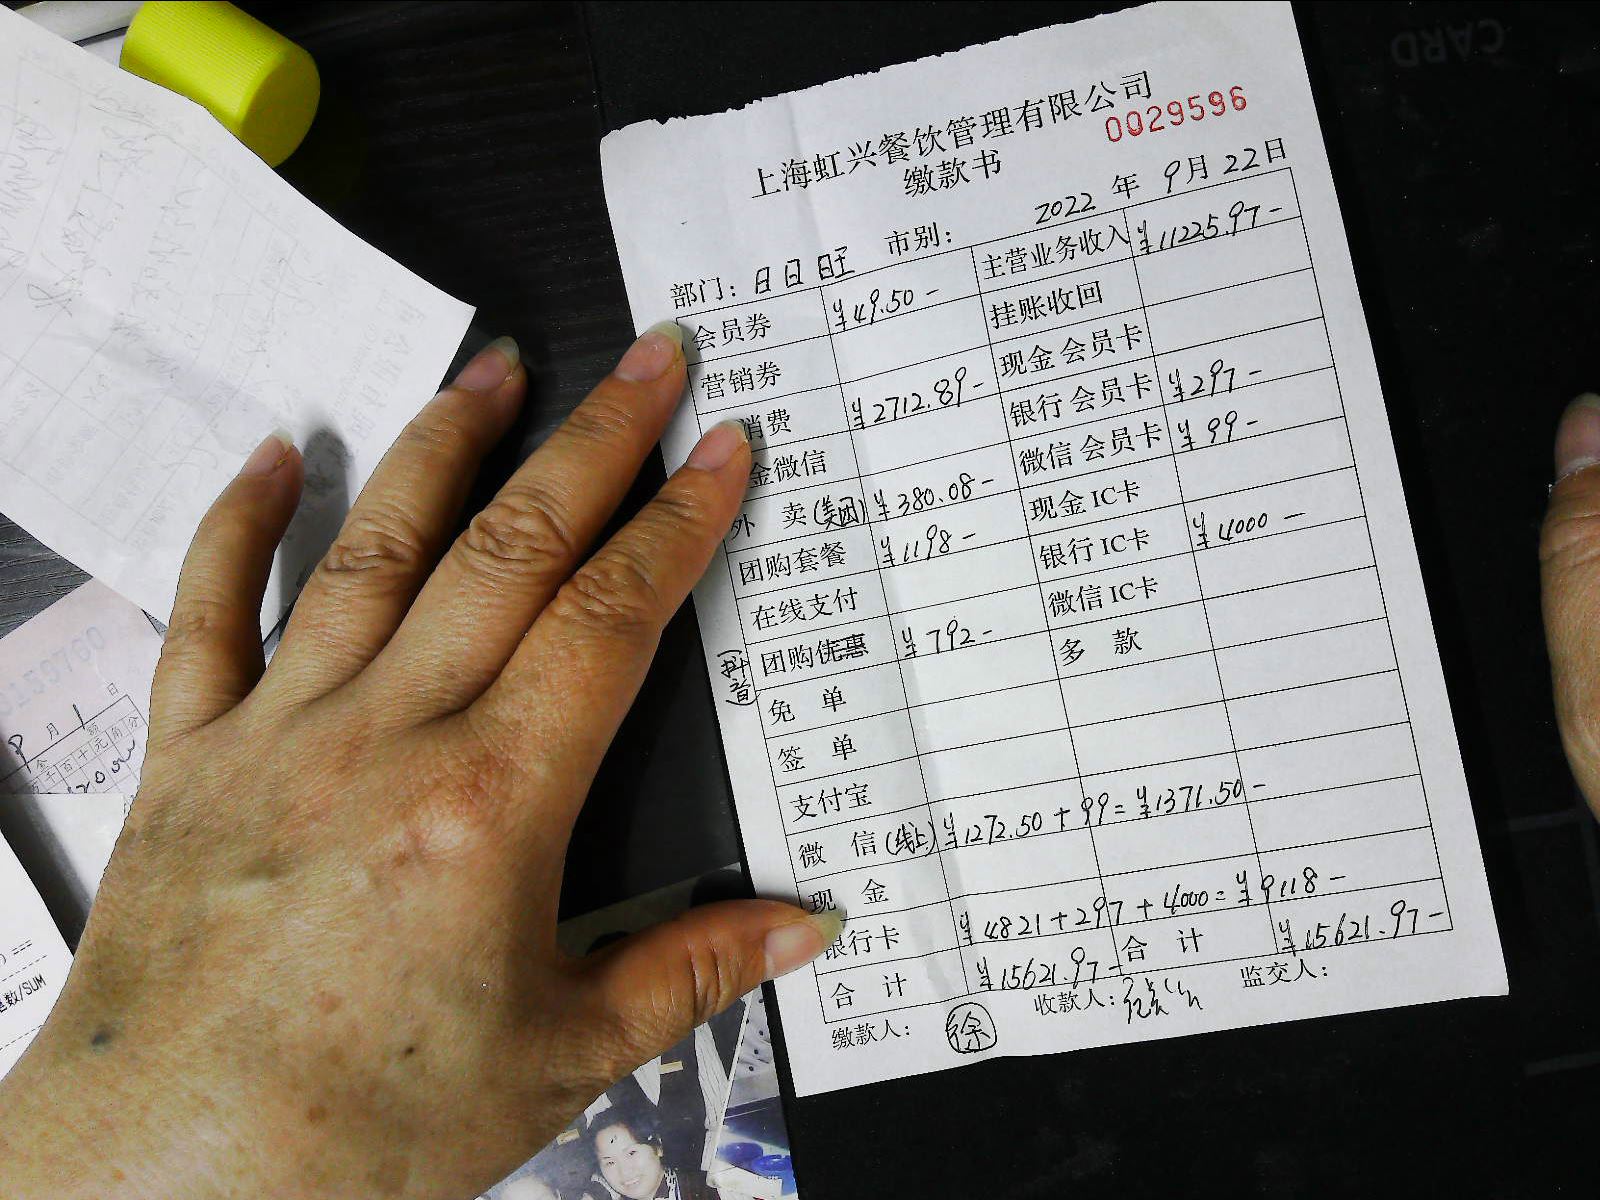 CARD
上海虹兴餐饮管理有限公司
0029596
缴款书
2022 年 9月 22日
部门：日日旺 市别：
会员券 ¥49.50- 主营业务收入 ¥11225.97-
营销券 挂账收回
消费 ¥2712.89- 现金 会员卡
金微信 银行 会员卡 ¥297-
外 卖(美团) ¥380.08- 微信 会员卡 ¥99-
团购套餐 ¥1198- 现金 IC卡
在线支付 银行 IC卡 ¥4000-
(抖音) 团购优惠 ¥792- 微信 IC卡
免 单 多 款
签 单
支付宝
微 信(线上) ¥1272.50+99=¥1371.50-
现 金
银行卡 ¥4821+297+4000=¥9118-
合 计 ¥15621.97- 合 计 ¥15621.97-
缴款人：徐 收款人： 监交人：
0159700
日
月
金 额
百十元角分
数/SUM